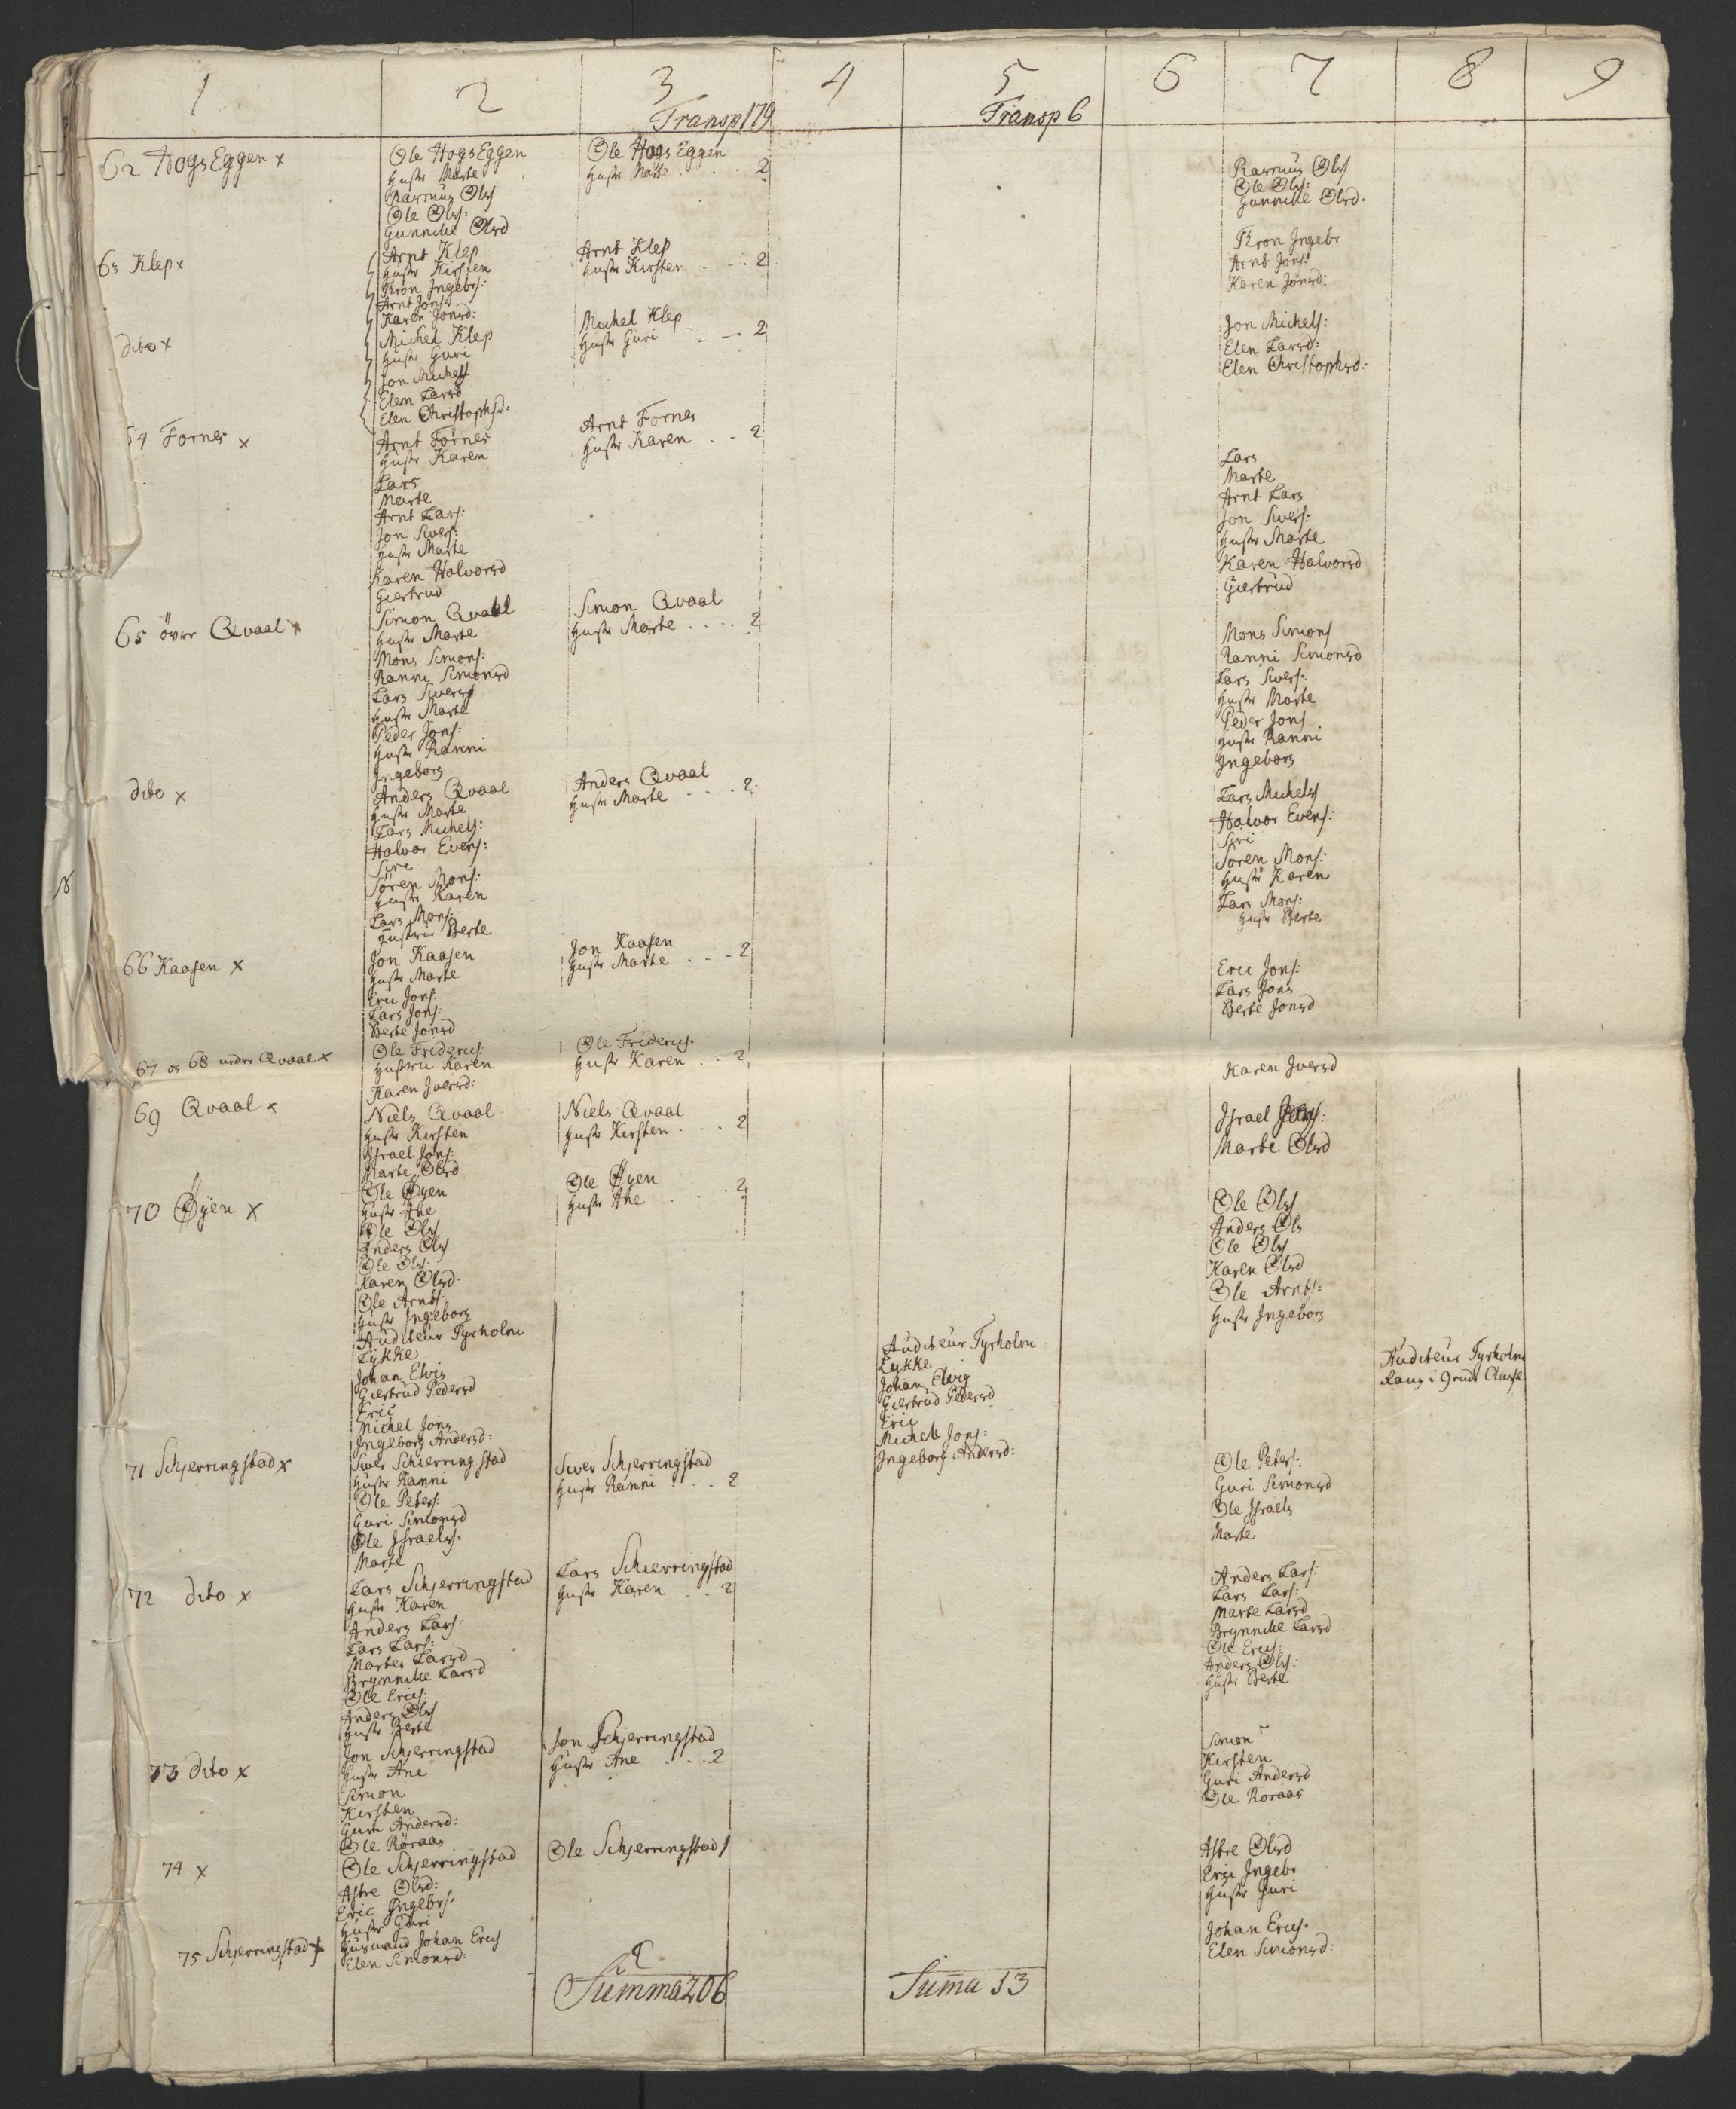 1 2 3 4 5 6 7 8 9
Transp 179 Transp 6
62 HogsEggen x Ole HogsEggen Ole Hogs Eggen
Hustr Marte Hustr Marte . . . 2 Rasmus Ols
Rasmus Ols Ole Ols:
Ole Ols: Gunnille Olsd.
Gunnille Olsd
63 Klep x Arnt Klep Arnt Klep Kron Ingebr
Hustr Kirsten Hustr Kirsten . . . 2 Arnt Jons:
Kron Ingebrs: Karen Jonsd:
Arnt Jons:
Karen Jonsd:
dito x Michel Klep Michel Klep Jon Michels:
Hustr Guri Hustr Guri . . . 2 Elen Larsd:
Jon Michels Elen Christophsd:
Elen Larsd
Elen Christophsd:
64 Fornes x Arnt Fornes Arnt Fornes
Hustr Karen Hustr Karen . . 2 Lars
Lars Marte
Marte Arnt Lars
Arnt Lars: Jon Sivers:
Jon Sivers: Hustr Marte
Hustr Marte Karen Halvorsd
Karen Halvorsd Giertrud
Giertrud
65 över Qvaal x Simon Qvaal Simon Qvaal
Hustr Marte Hustr Marte . . . . 2 Mons Simons
Mons Simons: Ranni Simonsd
Ranni Simonsd Lars Sivers:
Lars Sivers Hustr Marte
Hustr Marte Peder Jons
Peder Jons: Hustr Ranni
Hustr Ranni Ingeborg
Ingeborg
dito x Anders Qvaal Anders Qvaal Lars Michels
Hustr Marte Hustr Marte . . . 2 Halvor Evens:
Lars Michels: Siri
Halvor Evens: Sören Mons:
Siri Hustr Karen
Sören Mons: Lars Mons:
Hustr Karen Hustr Berte
Lars Mons:
Hustrue Berte
66 Kaasen x Jon Kaasen Jon Kaasen
Hustr Marte Hustr Marte . . . 2 Eric Jons:
Eric Jons: Lars Jons
Lars Jons: Berte Jonsd
Berte Jonsd
67 og 68 under Qvaal x Ole Friderics: Ole Friderics.
Hustrue Karen Hustr Karen . . 2 Karen Iversd
Karen Iversd:
69 Qvaal x Niels Qvaal Niels Qvaal Israel
Hustr Kirsten Hustr Kirsten . . . 2 Marte Olsd
Israel Jons:
Marte Olsd
70 Öyen x Ole Öyen Ole Öyen Ole Ols
Hustr Ane Hustr Ane . . . 2 Anders Ols
Ole Ols Ole Ols
Anders Ols Karen Olsd
Ole Ols: Ole Arnts:
Karen Olsd: Hustr Ingeborg
Ole Arnts:
Hustr Ingeborg
Auditeur Tyrholm Auditeur Tyrholm Auditeur Tyrholm
Lykke Lykke Rang i 9ende Classe
Johan Elvig Johan Elvig
Giertrud Pedersd Giertrud Pedersd
Eric Eric
Michel Jons Michel Jons:
Ingeborg Andersd: Ingeborg Andersd:
71 Schjerringstad x Siver Schierringstad Siver Schjerringstad Ole Peters:
Hustr Ranni Hustr Ranni . . . 2 Guri Simonsd
Ole Peters: Ole Israels
Guri Simonsd Marte
Ole Israels:
Marte
72 dito x Lars Schjerringstad Lars Schierringstad Anders Lars:
Hustr Karen Hustr Karen . . 2 Lars Lars:
Anders Lars: Marte Larsd
Lars Lars: Brynnille Larsd
Marte Larsd Ole Erics:
Brynnille Larsd Anders Ols:
Ole Erics: Hustr Berte
Anders Ols
Hustr Berte
73 dito x Jon Schjerringstad Jon Schjerringstad Simon
Hustr Ane Hustr Ane . . . 2 Kirsten
Simon Guri Andersd
Kirsten Ole Roraas
Guri Andersd:
Ole Röraas
74 x Ole Schjerringstad Ole Schjerringstad 1 Astre Olsd
Astre Olsd: Eric Ingebr
Eric Ingebrs. Hustr Guri
Hustr Guri
75 Schjerringstad x Husmand Johan Erics Johan Erics.
Elen Simonsd: Elen Simonsd:
Summa 206 Suma 13